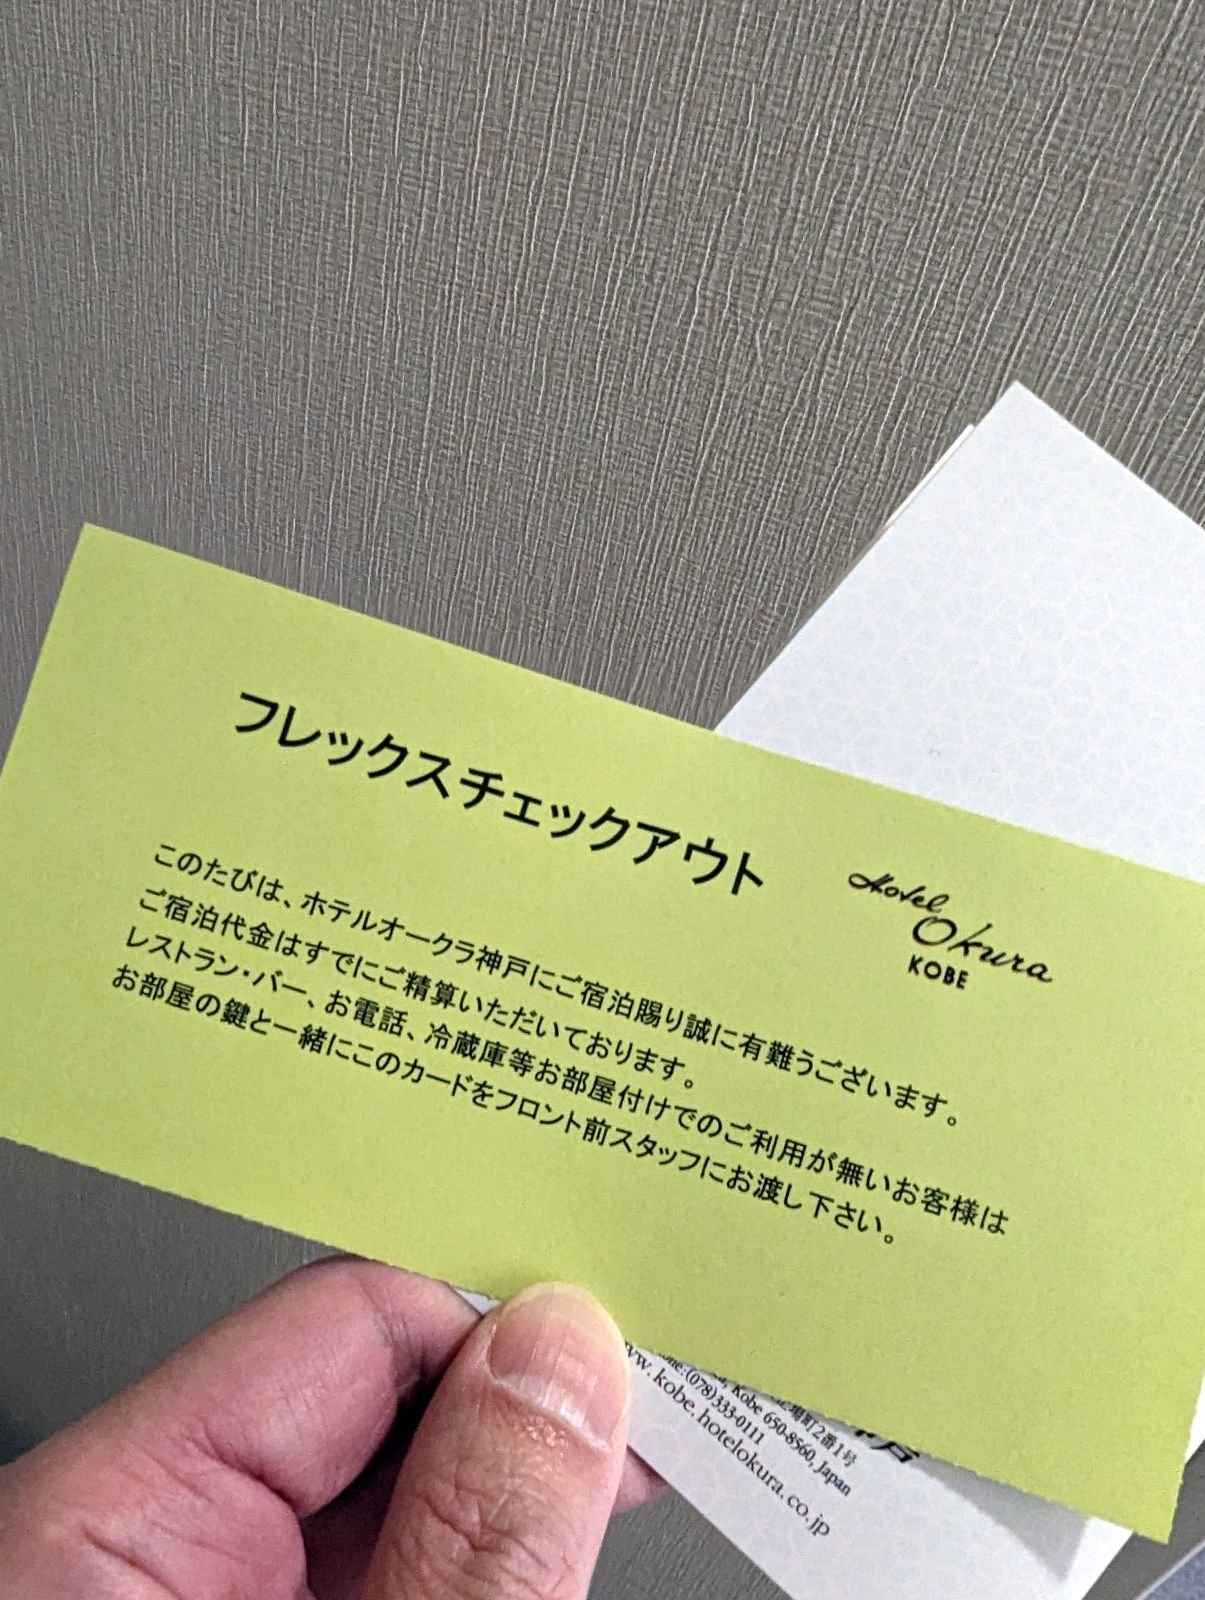 フレックスチェックアウト
Hotel
Okura
KOBE
このたびは、ホテルオークラ神戸にご宿泊賜り誠に有難うございます。
ご宿泊代金はすでにご精算いただいております。
レストラン・バー、お電話、冷蔵庫等お部屋付けでのご利用が無いお客様は
お部屋の鍵と一緒にこのカードをフロント前スタッフにお渡し下さい。
町2番1号
Kobe 650-8560, Japan
(078)333-0111
www.kobe.hotelokura.co.jp